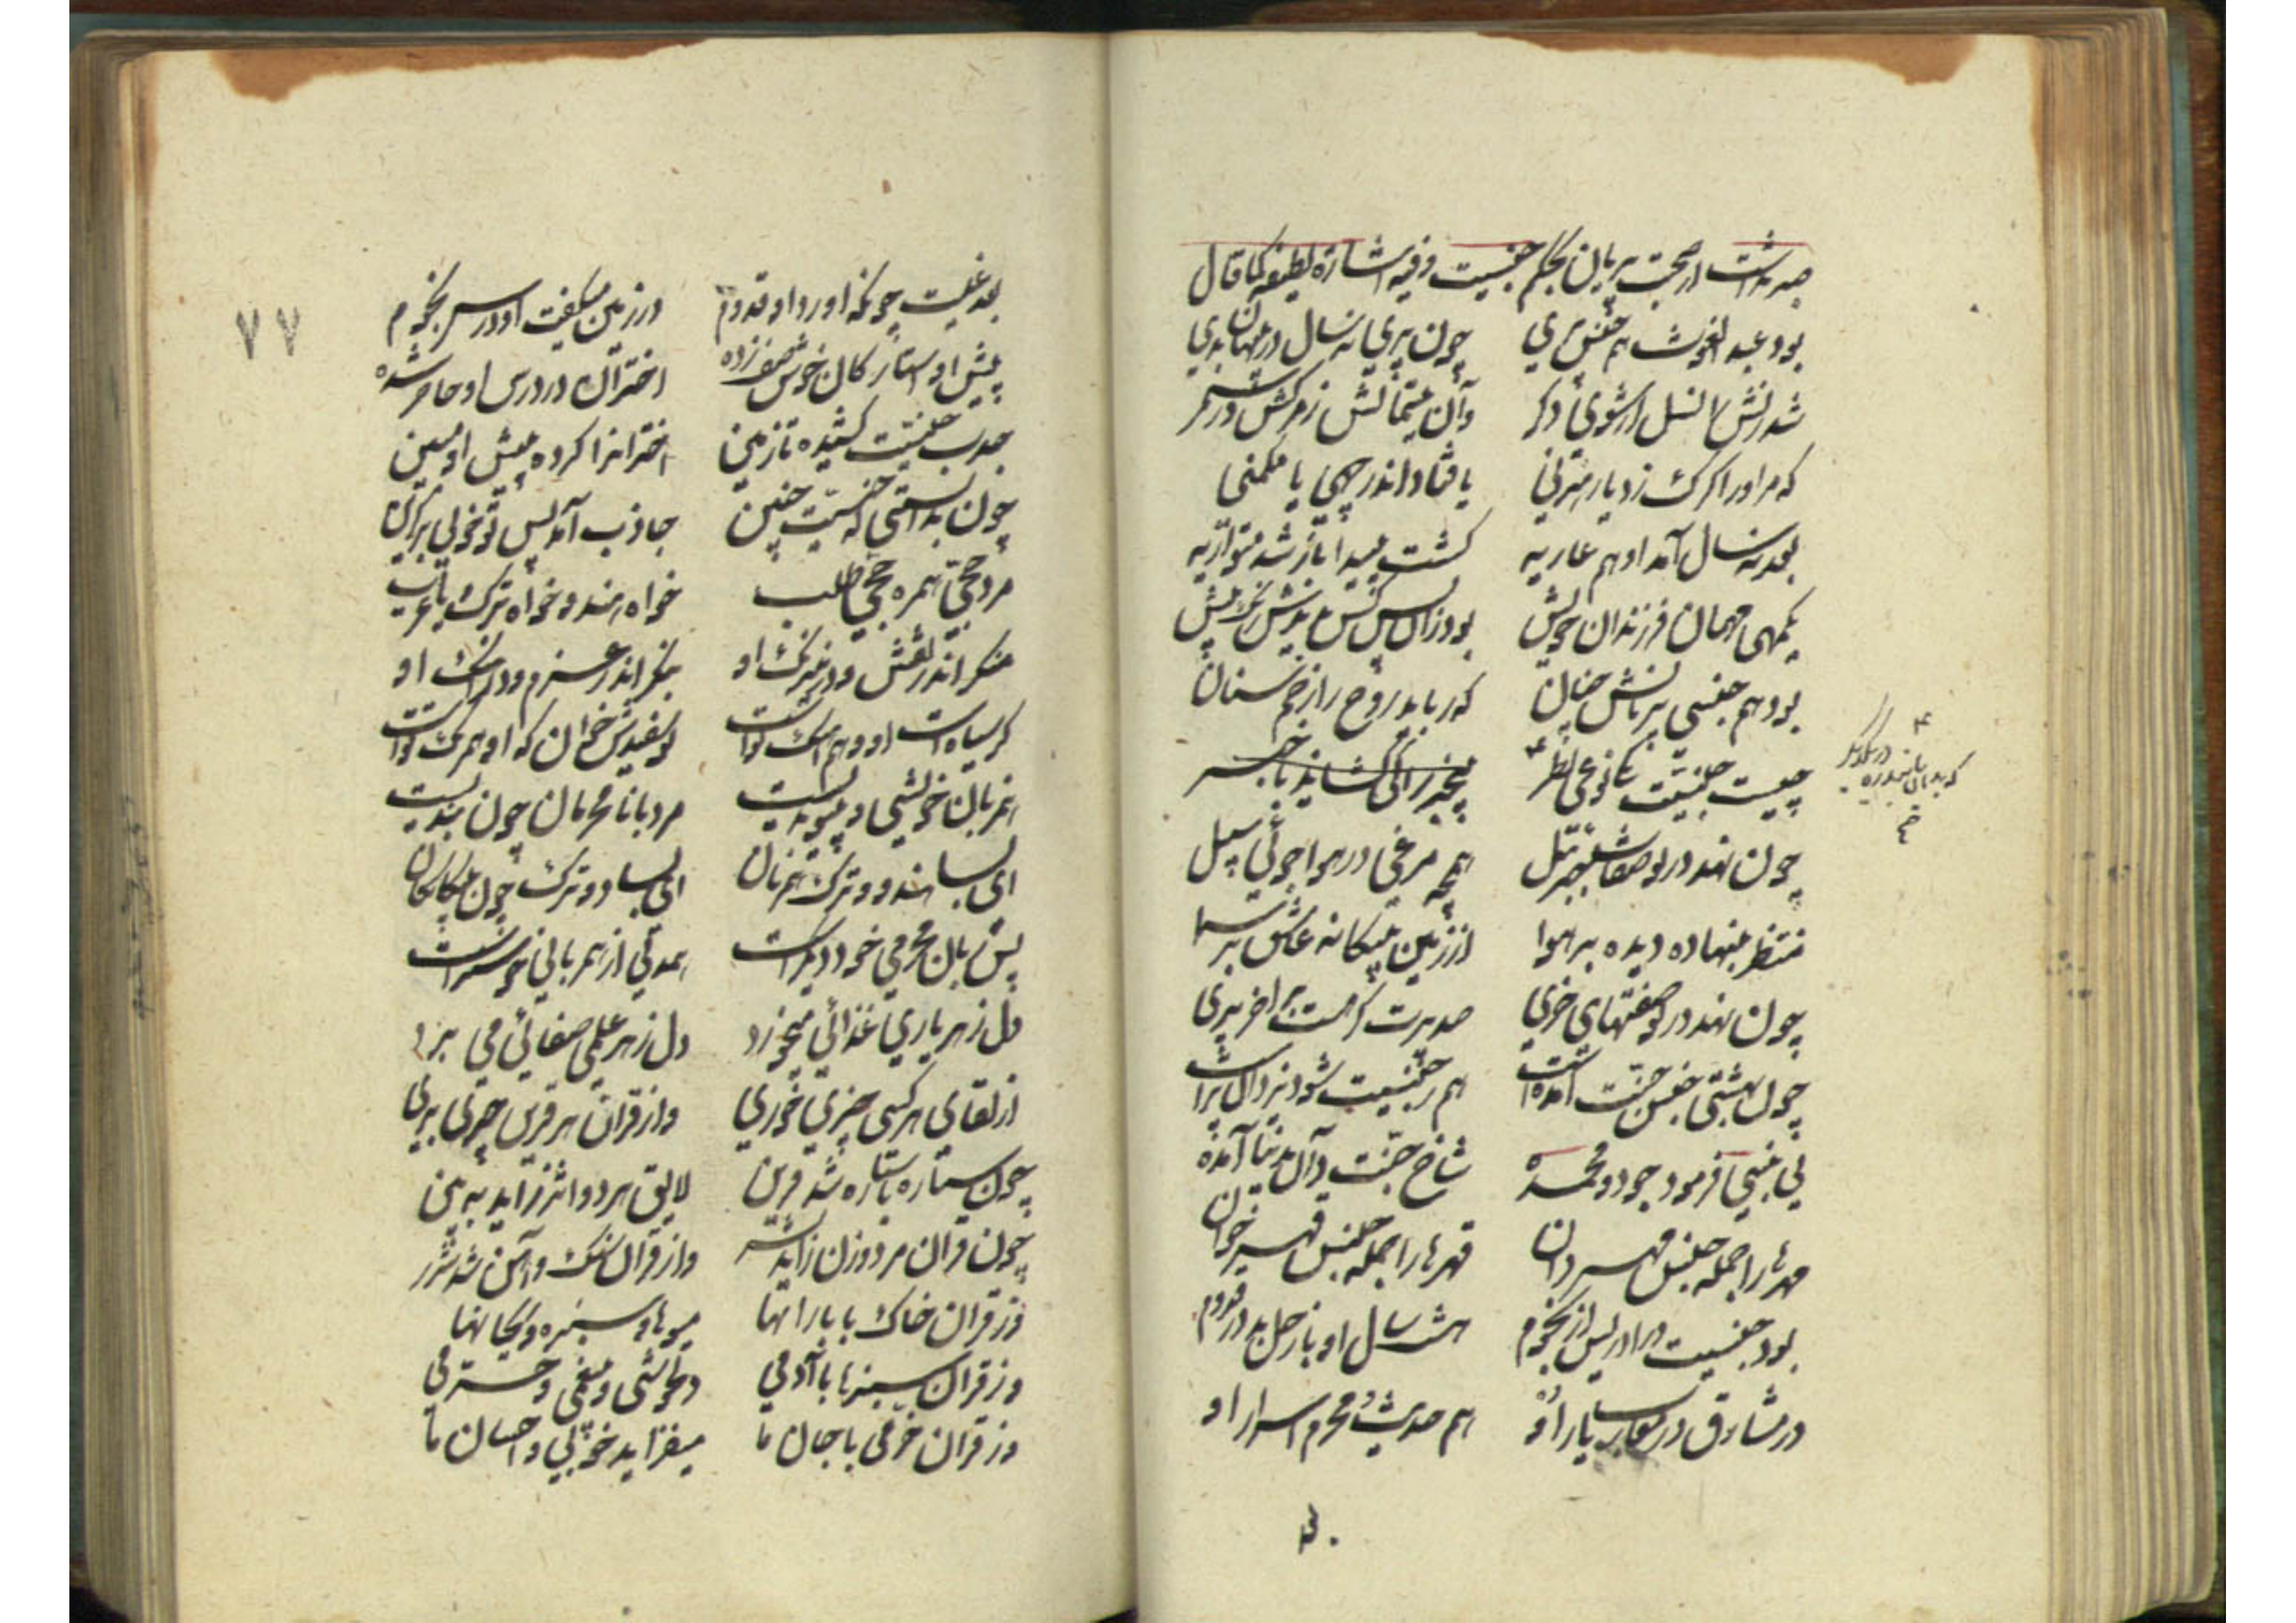 بود عبد الغوث هم جنس پری چون پری نه سال در پنهان بدی
شد زنش را نسل از شوی دگر وآن یتیمانش ز مرگش در سمر
که مر او را گرگ زد یا رهزنی یا فتاد اندر چهی یا مکمنی
بعد نه سال آمد او هم عاریه گشت پیدا باز شد متواریه
یکمهی مهمان فرزندان خویش بود زان پس کس ندیدش رنگ بیش
بود هم جنسی پریانش چنان که رباید روح را زخم سنان
چیست جنسیت یکی نوعی نظر
چون نهد در تو صفات جبرئیل همچو مرغی در هوا جوئی سبیل
منتظر بنهاده دیده بر هوا از زمین بیگانه عاشق بر سما
چون نهد در تو صفتهای خری صد پرت گر هست بر آخر پری
چون بهشتی جنس جنت آمده است هم ز جنسیت شود یزدان پرست
نی نبی فرمود جود و محمده شاخ جنت دان بدنیا آمده
مهرها را جمله جنس مهر دان قهرها را جمله جنس قهر خوان
بود جنسیت در ادریس از نجوم هشت سال او با زحل بد در قدوم
در مشارق در مغارب یار او هم حدیث و محرم اسرار او
۷۷
بعد غیبت چونکه آورد او قدوم در زمین میگفت او درس نجوم
پیش او استارگان خوش صف زده اختران در درس او حاضر شده
جذب جنسیت کشیده تا زمین اختران را کرده پیش او مبین
چون بدانستی که جنسیت چنین جاذب آمد پس تو خوئی برگزین
مرد حجی همره حجی طلب خواه هندو خواه ترک یا عرب
منگر اندر نقش و در رنگ او بنگر اندر عزم و در آهنگ او
گر سیاه است او و هم آهنگ تو است تو سفیدش خوان که او همرنگ تو است
همزبان خویشی و پیوندیست مرد با نامحرمان چون بندیست
ای بسا هندو و ترک همزبان ای بسا دو ترک چون بیگانگان
پس زبان محرمی خود دیگر است همدلی از همزبانی خوشتر است
دل ز هر یاری غذائی میخورد دل ز هر علمی صفائی می برد
از لقای هر کسی چیزی خوری وز قران هر قرین چیزی بری
چون ستاره با ستاره شد قرین لایق هر دو اثر زاید یقین
چون قران مرد و زن زاید بشر وز قران سنگ و آهن شد شرر
وز قران خاک با بارانها میوها و سبزه و ریحانها
وز قران سبزها با آدمی دلخوشی و بیغمی و خرمی
وز قران خرمی با جان ما میفزاید خوبی و احسان ما